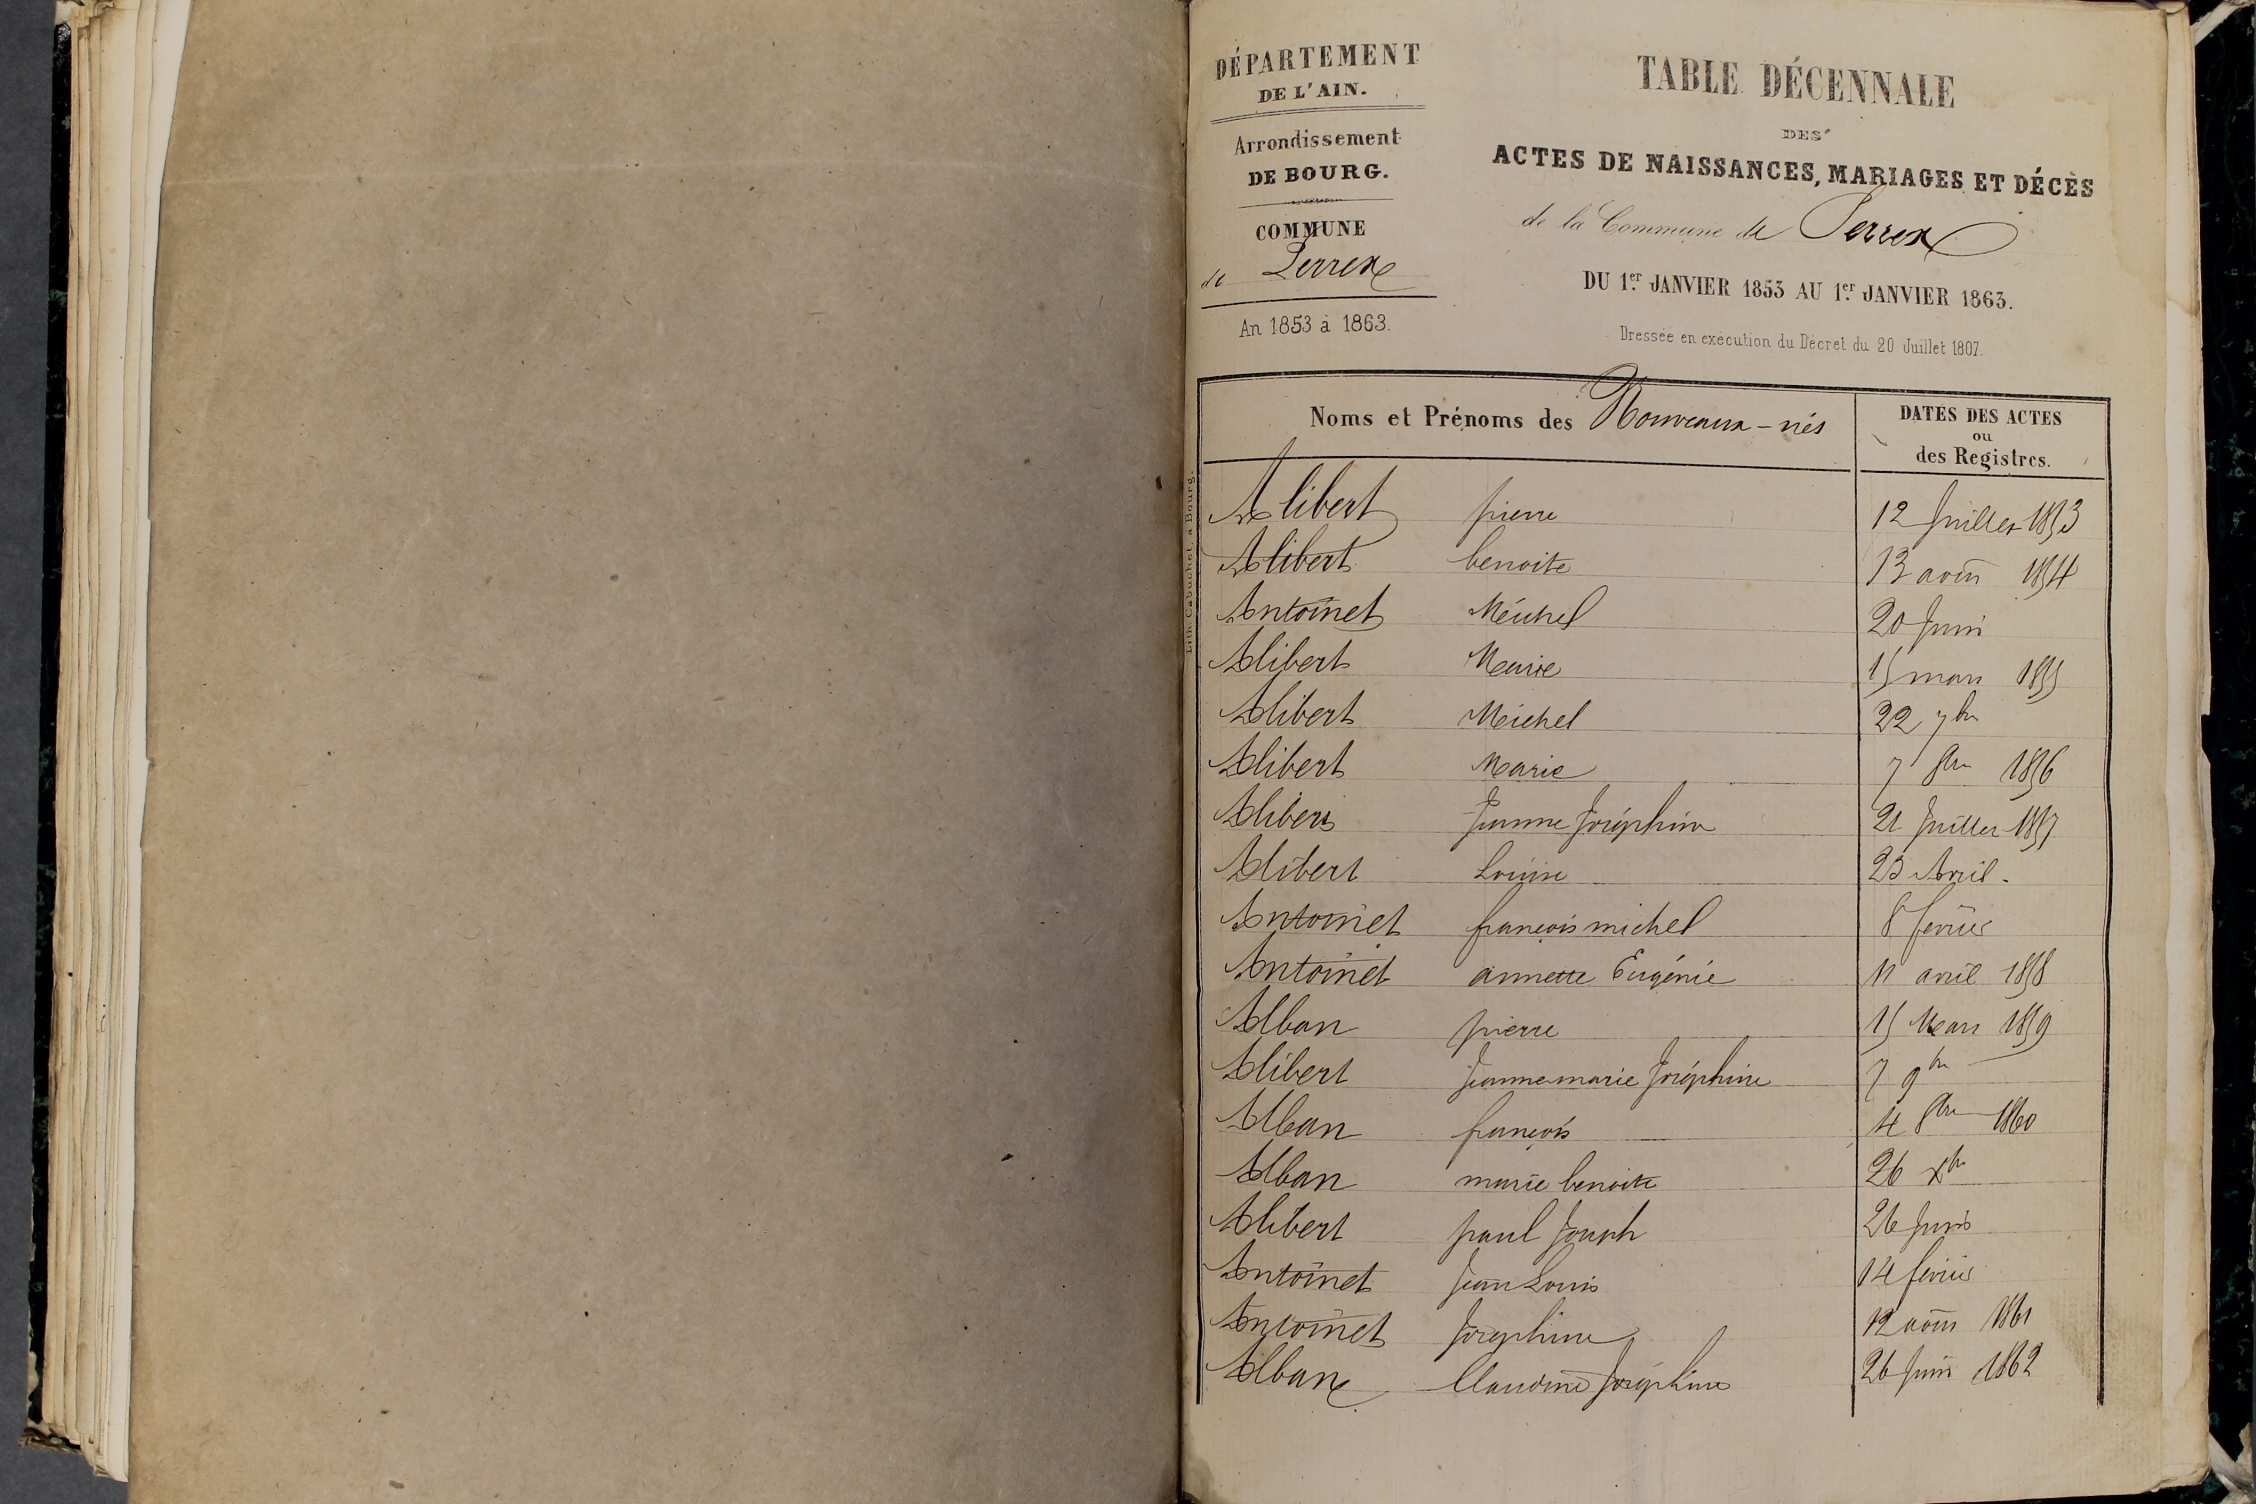 DÉPARTEMENT
DE L'AIN.
Arrondissement
DE BOURG.
COMMUNE
de Perrex
An 1853 à 1863.
TABLE DÉCENNALE
DES
ACTES DE NAISSANCES, MARIAGES ET DÉCÈS
de la Commune de Perrex
DU 1er JANVIER 1853 AU 1er JANVIER 1863.
Dressée en exécution du Décret du 20 Juillet 1807.
Lith. Cabuchet, à Bourg.
Noms et Prénoms des Nouveaux-nés
DATES DES ACTES
ou
des Registres.
Alibert pierre 12 Juillet 1853
Alibert benoite 13 août 1854
Antoinet Michel 20 Juin
Alibert Marie 15 mars 1855
Alibert Michel 22 7bre
Alibert Marie 7 8bre 1856
Alibert Jeanne Joséphine 21 Juillet 1857
Alibert Louise 23 Avril.
Antoinet françois michel 8 février
Antoinet annette Eugénie 11 avril 1858
Alban pierre 15 Mars 1859
Alibert Jeanne marie Joséphine 7 9bre
Alban françois 4 8bre 1860
Alban marie benoite 26 Xbre
Alibert paul Joseph 26 Juin
Antoinet Jean Louis 14 février
Antoinet Joséphine 12 août 1861
Alban Claudine Joséphine 26 Juin 1862